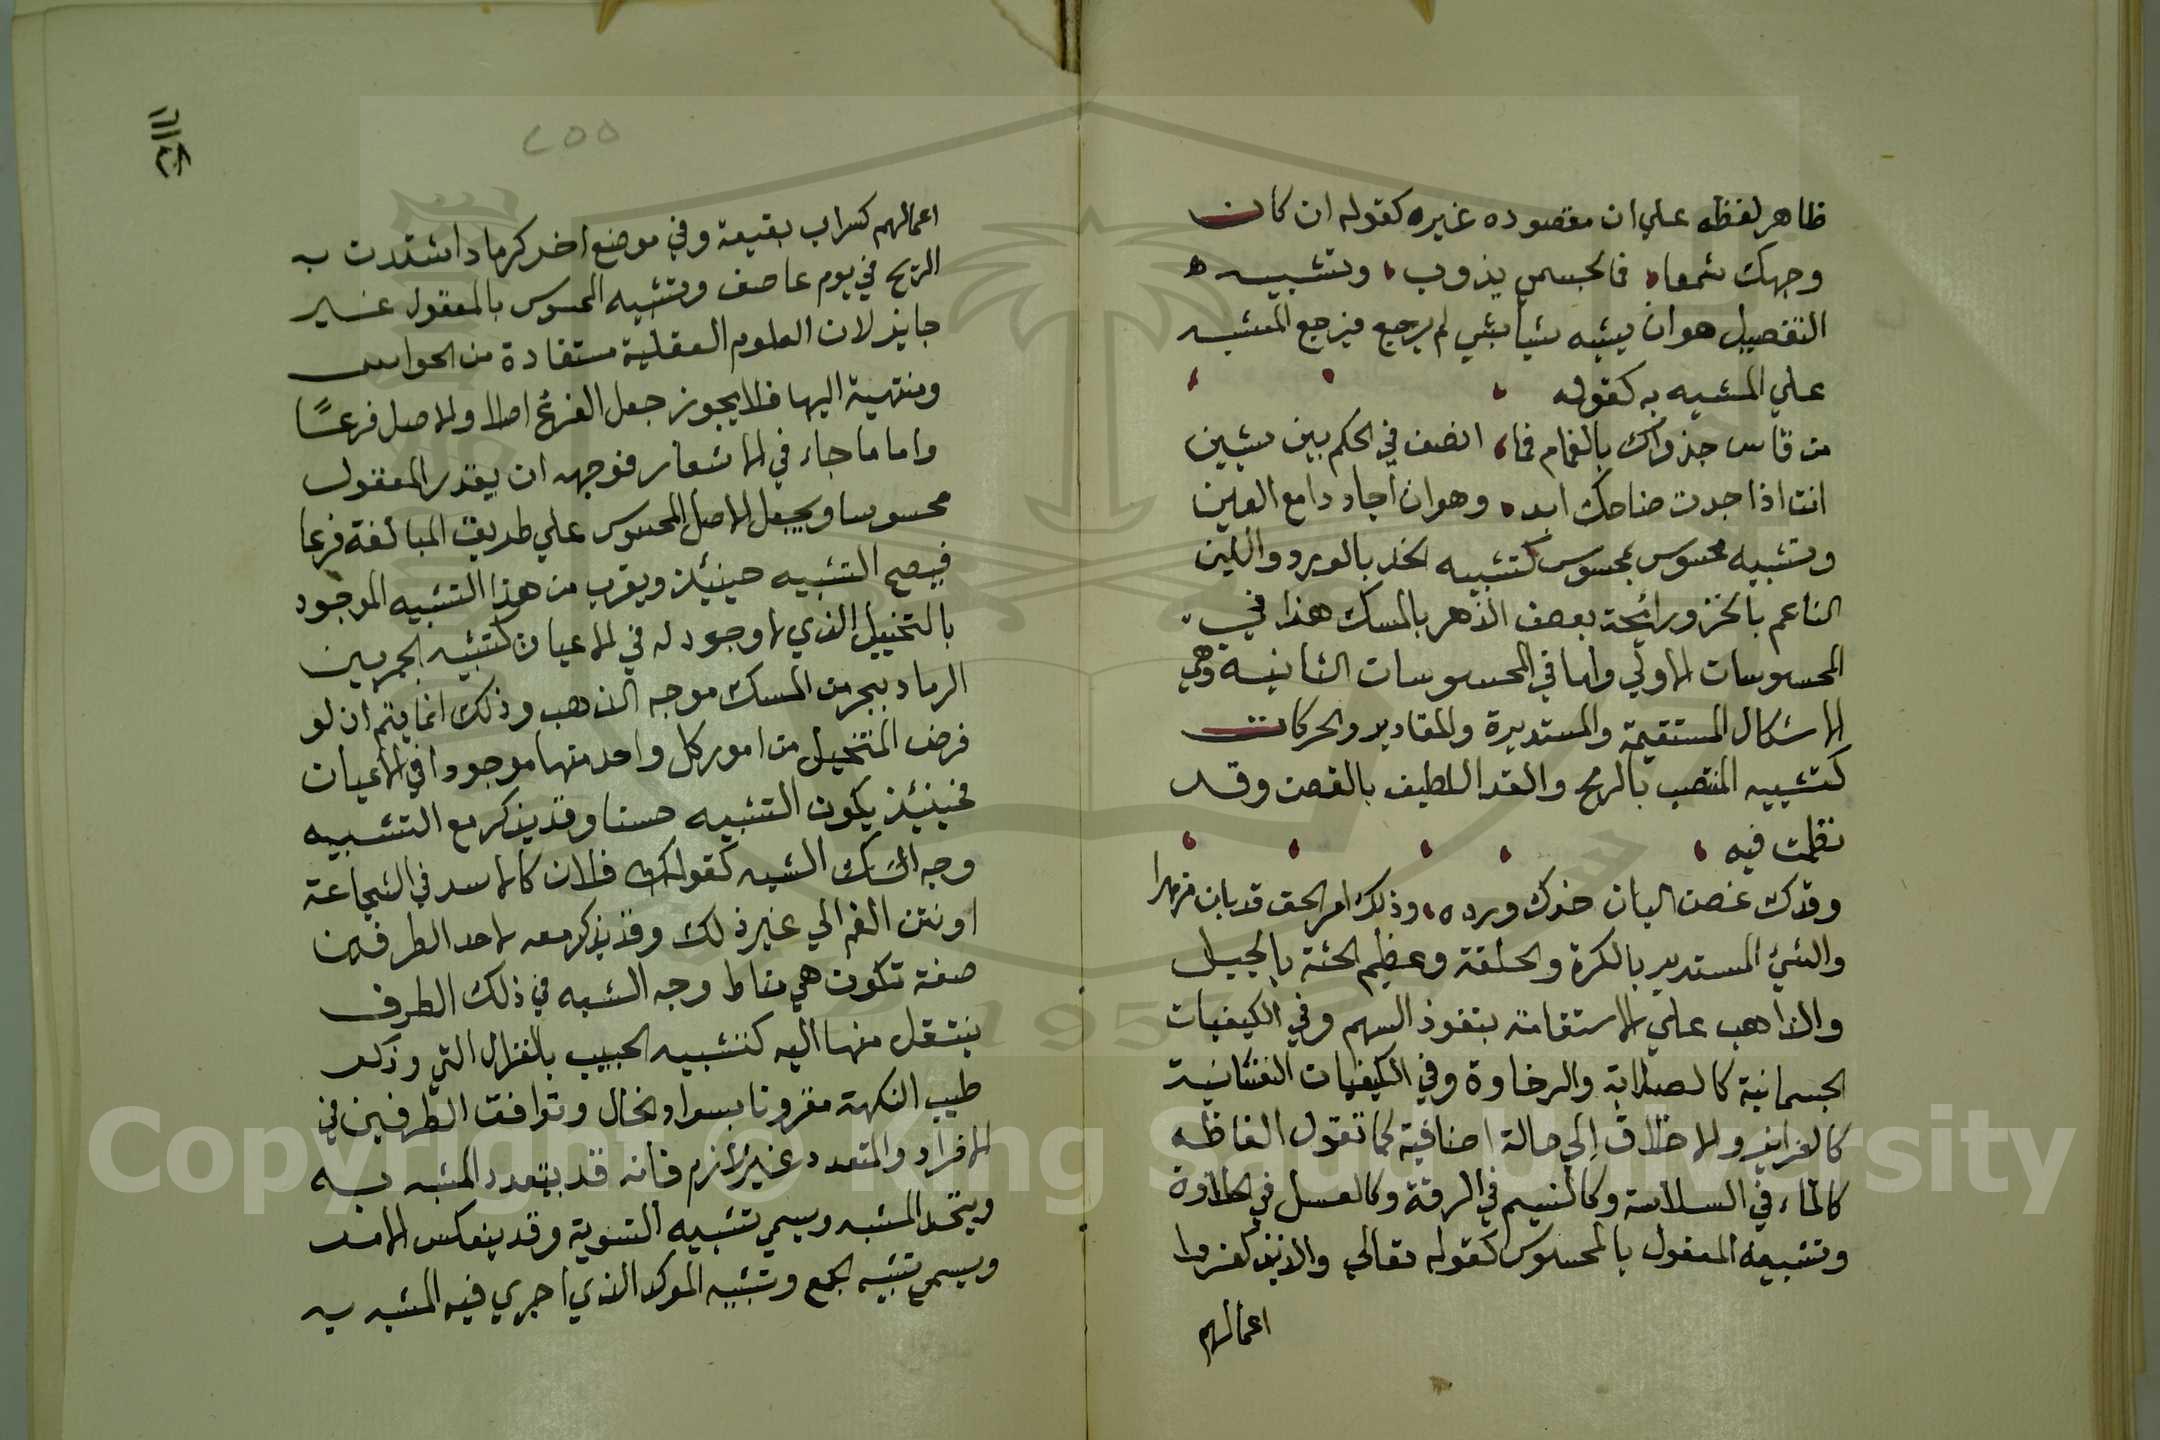 ظاهر لفظه علي ان مقصوده غيره كقوله ان كانت
وجهك شمعا، فالجسمي يذوب، وتشبيه
التفضيل هو ان يشبه شيا بشي لم يرجع فيرجع المشبه
علي المشبه به كقوله
من قاس جذواك بالغمام فما، انصف في الحكم بين شيين
انت اذا جدت ضاحك ابدا، وهو ان اجاد دامع العين
وتشبيه محسوس بمحسوس كتشبيه الخد بالورد واللين
الناعم بالخز ورائحة بعض الزهر بالمسك هذا في
المحسوسات الاولي واما في المحسوسات الثانية وهي
الاشكال المستقيمة والمستديرة والمقادير والحركات
كتشبيه المنتصب بالرمح والقد اللطيف بالغصن وقد
نظمت فيه
وقدك غصن البان خدك ورده، وذلك امر الحق قد بان
والشي المستدير بالكرة والحلقة وعظيم الجثة بالجبل
والذاهب علي الاستقامة بنفوذ السهم وفي الكيفيات
الجسمانية كالصلابة والرخاوة وفي الكيفيات النفسانية
كالغرايز والاخلاق الي حالة اضافية كما تقول الفاظه
كالماء في السلاسة وكالنسيم في الرقة وكالعسل في الحلاوة
وتشبيه المعقول بالمحسوس كقوله تعالي والذين كفروا
اعمالهم
٢٥٥
اعمالهم كسراب بقيعة وفي موضع اخر كرماد اشتدت به
الريح في يوم عاصف وتشبيه المحسوس بالمعقول غير
جايز لان العلوم العقلية مستفادة من الحواس
ومنتهية اليها فلا يجوز جعل الفرع اصلا والاصل فرعا
واما ما جاء في الاشعار فوجهه ان يقدر المعقول
محسوسا ويجعل الاصل المحسوس علي طريق المبالغة فرعا
فيصح التشبيه حينئذ ويقرب من هذا التشبيه الموجود
بالتخييل الذي لا وجود له في الاعيان كتشبيه الجمر بين
الرماد ببحر من المسك موجه الذهب وذلك انما يتم ان لو
فرض المتخيل من امور كل واحد منها موجودا في الاعيان
فحينئذ يكون التشبيه حسنا وقد يذكر مع التشبيه
وجه الشبه كقولك فلان كالاسد في الشجاعة
او نتن الفم الي غير ذلك وقد يذكر معه لاحد الطرفين
صفة تكون هي مناط وجه الشبه في ذلك الطرف
ينتقل منها اليه كتشبيه الحبيب بالغزال التي وذكر
طيب النكهة مقرونا بسواد الخال وتوافق الطرفين في
الافراد والتعدد غير لازم فانه قد يتعدد المشبه به
ويتحد المشبه ويسمي تشبيه التسوية وقد ينعكس الامر
ويسمي تشبيه الجمع وتشبيه الموكد الذي اجري فيه المشبه به
Copyright © King Saud University
1957